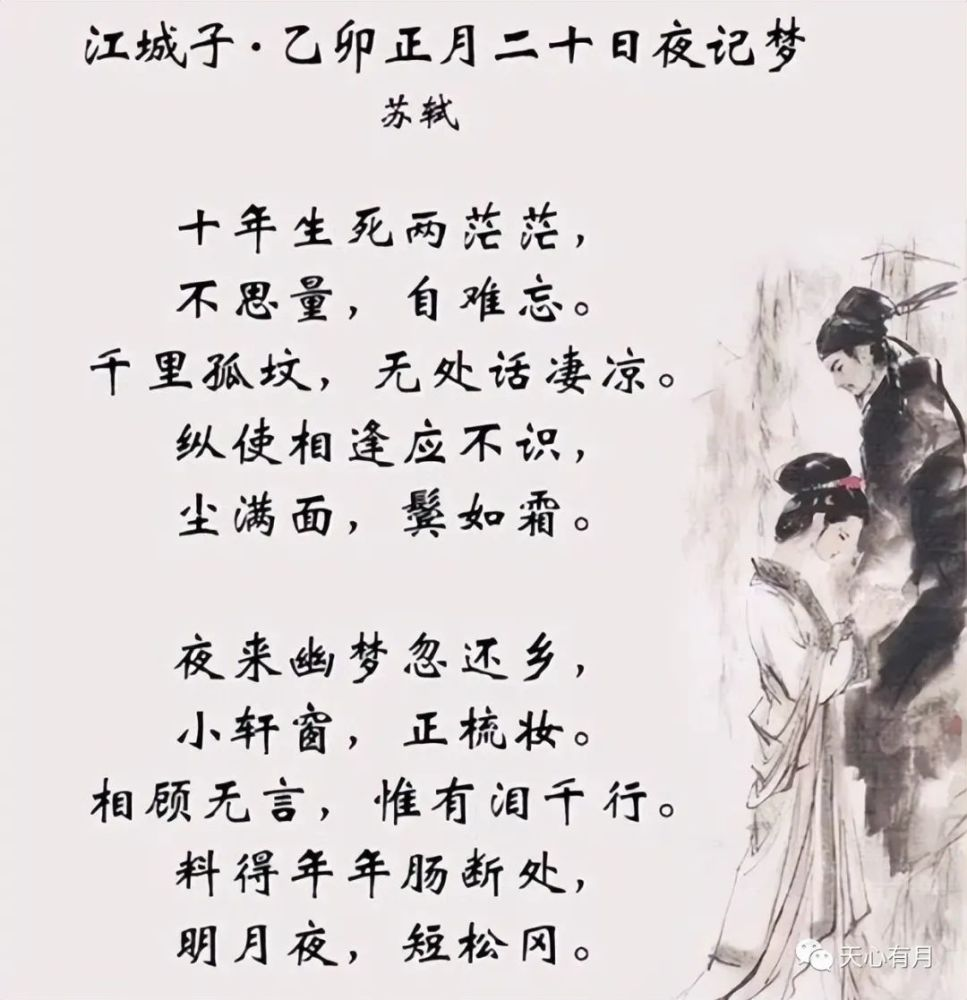 江城子·乙卯正月二十日夜记梦
苏轼
十年生死两茫茫，
不思量，自难忘。
千里孤坟，无处话凄凉。
纵使相逢应不识，
尘满面，鬓如霜。
夜来幽梦忽还乡，
小轩窗，正梳妆。
相顾无言，惟有泪千行。
料得年年肠断处，
明月夜，短松冈。
天心有月